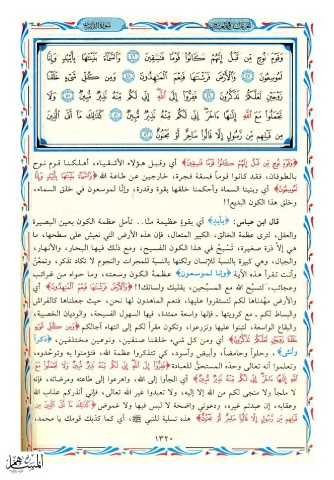 وَقَوْمَ نُوحٍ مِّن قَبْلُ إِنَّهُمْ كَانُوا قَوْمًا فَاسِقِينَ ﴿٤٦﴾ وَالسَّمَاءَ بَنَيْنَاهَا بِأَيْدٍ وَإِنَّا
لَمُوسِعُونَ ﴿٤٧﴾ وَالْأَرْضَ فَرَشْنَاهَا فَنِعْمَ الْمَاهِدُونَ ﴿٤٨﴾ وَمِن كُلِّ شَيْءٍ خَلَقْنَا
زَوْجَيْنِ لَعَلَّكُمْ تَذَكَّرُونَ ﴿٤٩﴾ فَفِرُّوا إِلَى اللَّهِ إِنِّي لَكُم مِّنْهُ نَذِيرٌ مُّبِينٌ ﴿٥٠﴾ وَلَا
تَجْعَلُوا مَعَ اللَّهِ إِلَهًا آخَرَ إِنِّي لَكُم مِّنْهُ نَذِيرٌ مُّبِينٌ ﴿٥١﴾ كَذَلِكَ مَا أَتَى الَّذِينَ
مِن قَبْلِهِم مِّن رَّسُولٍ إِلَّا قَالُوا سَاحِرٌ أَوْ مَجْنُونٌ ﴿٥٢﴾
﴿وَقَوْمَ نُوحٍ مِّن قَبْلُ إِنَّهُمْ كَانُوا قَوْمًا فَاسِقِينَ﴾ أي وقبل هؤلاء الأشقياء، أهلكنا قوم نوح
بالطوفان، فقد كانوا قوماً فسقة فجرة، خارجين عن طاعة الله ﴿وَالسَّمَاءَ بَنَيْنَاهَا بِأَيْدٍ وَإِنَّا
لَمُوسِعُونَ﴾ أي وبنينا السماء وأحكمنا خلقها بقوة وقدرة، وإنا لموسعون في خلق السماء،
وخلق هذا الكون البديع!!
قال ابن عباس: ﴿بِأَيْدٍ﴾ أي بقوة عظيمة منّا.. تأمل عظمة الكون بعين البصيرة
والعقل، لترى عظمة الخالق، الكبير المتعال، فإن هذه الأرض التي نعيش على سطحها، ما
هي إلا ذرة صغيرة، تسْبح في هذا الكون الفسيح، ومع ذلك فيها البحار، والأنهار،
والجبال، وهي كبيرة بالنسبة للإنسان ولكنها بالنسبة للمجرات والنجوم لا تكاد تذكر، وتمعّنْ
وأنت تقرأ هذه الآية ﴿وإنا لموسعون﴾ عظمةَ الكون وسعته، وما حواه من غرائب
وعجائب، لتسبّح الله مع المسبّحين، بقلبك ولسانك!! ﴿وَالْأَرْضَ فَرَشْنَاهَا فَنِعْمَ الْمَاهِدُونَ﴾ أي
والأرض مهّدناها لكم لتستقروا عليها، فنعم الماهدون لها نحن، حيث جعلناها كالفراش
والبساط لكم ـ مع كرويتها ـ فإنها واسعة ممتدة، فيها السهول الفسيحة، والوديان الخصيبة،
والبقاع الواسعة، لتبنوا عليها وتزرعوا، وتكون مقراً لكم إلى انتهاء آجالكم ﴿وَمِن كُلِّ شَيْءٍ
خَلَقْنَا زَوْجَيْنِ لَعَلَّكُمْ تَذَكَّرُونَ﴾ أي ومن كل شيء خلقنا صنفين، ونوعين مختلفين، ﴿ذكراً
وأنثى﴾، وحلواً وحامضاً، وأبيض وأسود، كي تتذكروا عظمة الله، فتؤمنوا به وتوحّدوه،
وتعلموا أنه تعالى وحده المستحقُّ للعبادة ﴿فَفِرُّوا إِلَى اللَّهِ إِنِّي لَكُم مِّنْهُ نَذِيرٌ مُّبِينٌ وَلَا تَجْعَلُوا مَعَ
اللَّهِ إِلَهًا آخَرَ إِنِّي لَكُم مِّنْهُ نَذِيرٌ مُّبِينٌ﴾ أي الجأوا إلى الله، واهرعوا إلى طاعته ومرضاته، فإنه
لا ملجأ ولا منجى لكم من الله إلا إليه، ولا تعبدوا غير الله تعالى، فإني أنذركم عذاب الله
وعقابه، إن عبدتم غيره، ودعوتي واضحة لا لبس فيها ولا غموض ﴿كَذَلِكَ مَا أَتَى الَّذِينَ مِن
قَبْلِهِم مِّن رَّسُولٍ إِلَّا قَالُوا سَاحِرٌ أَوْ مَجْنُونٌ﴾ هذه تسلية للنبي ﷺ، أي كما كذبك قومك يا محمد،
١٣٢٠